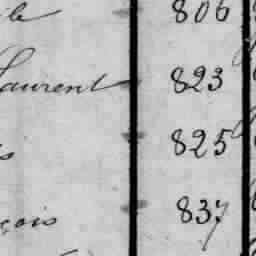 le 806
Laurent 823
s 825
çois 837